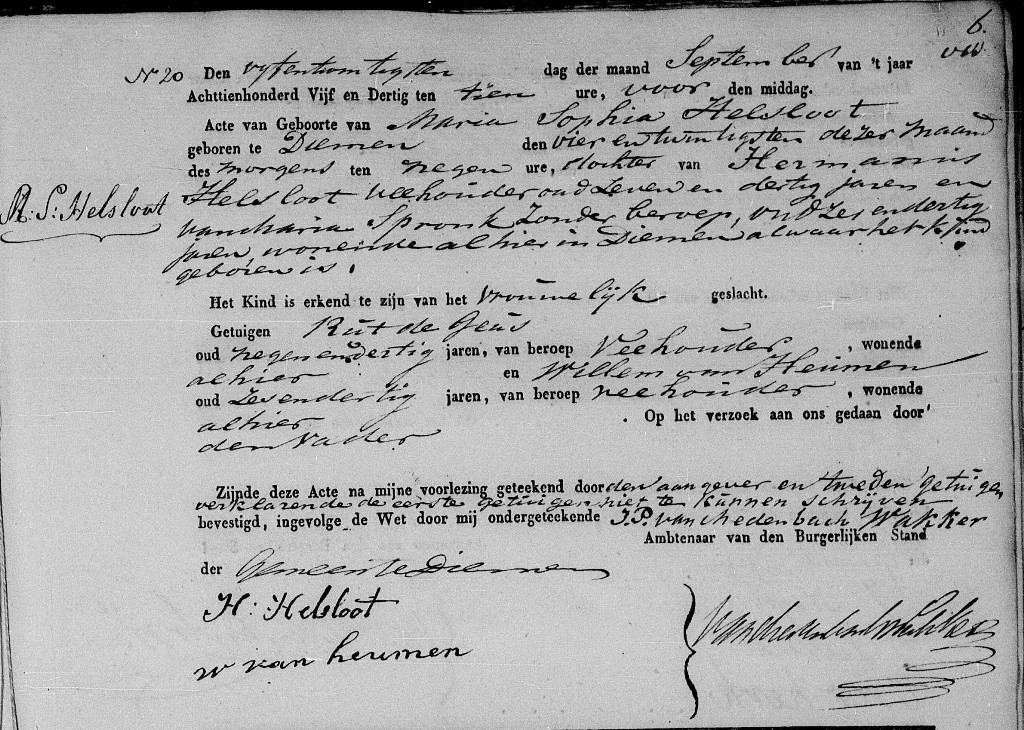 6.
VW.
No 20 Den vyfentwintigsten dag der maand September van 't jaar
Achttienhonderd Vijf en Dertig ten tien ure, voor den middag.
Acte van Geboorte van Maria Sophia Helsloot
geboren te Diemen den vier en twintigsten dezer maand
des morgens ten negen ure, dochter van Hermanus
M: S: Helsloot
Helsloot veehouder oud zeven en dertig jaren en
van Maria Spronk zonder beroep, oud zes en dertig
jaren, wonende alhier in Diemen alwaar het kind
geboren is.
Het Kind is erkend te zijn van het vrouwelijk geslacht.
Getuigen Rut de Geus
oud negenendertig jaren, van beroep Veehouder, wonende
alhier en Willem van Heumen
oud zesendertig jaren, van beroep veehouder, wonende
alhier Op het verzoek aan ons gedaan door
den Vader
Zijnde deze Acte na mijne voorlezing geteekend door den aangever en tweden getuigen
verklarende de eerste getuigen niet te kunnen schrijven
bevestigd, ingevolge de Wet door mij ondergeteekende J. P. van Rhedenbach Wakker
Ambtenaar van den Burgerlijken Stand
der Gemeente Diemen
H: Helsloot
w van heumen